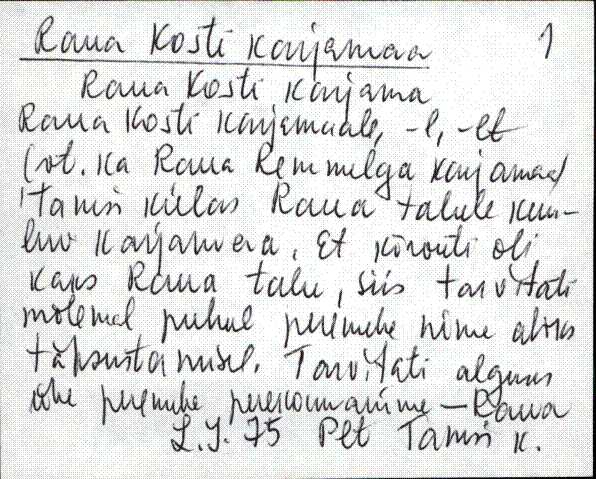 Raua Kosti karjamaa 1
Raua Kosti karjama
Raua Kosti karjamaale, -l, -lt
(vt. ka Raua Remmelga karjamaa)
Tamsi külas Raua talule kuu-
luv karjamaa. Et kõrvuti oli
kaks Raua talu, siis tarvitati
mõlemal puhul peremehe nime abiks
täpsustamisel. Tarvitati algus
ühe peremehe perekonnanime – Raua
L.J. 75 Plt Tamsi k.